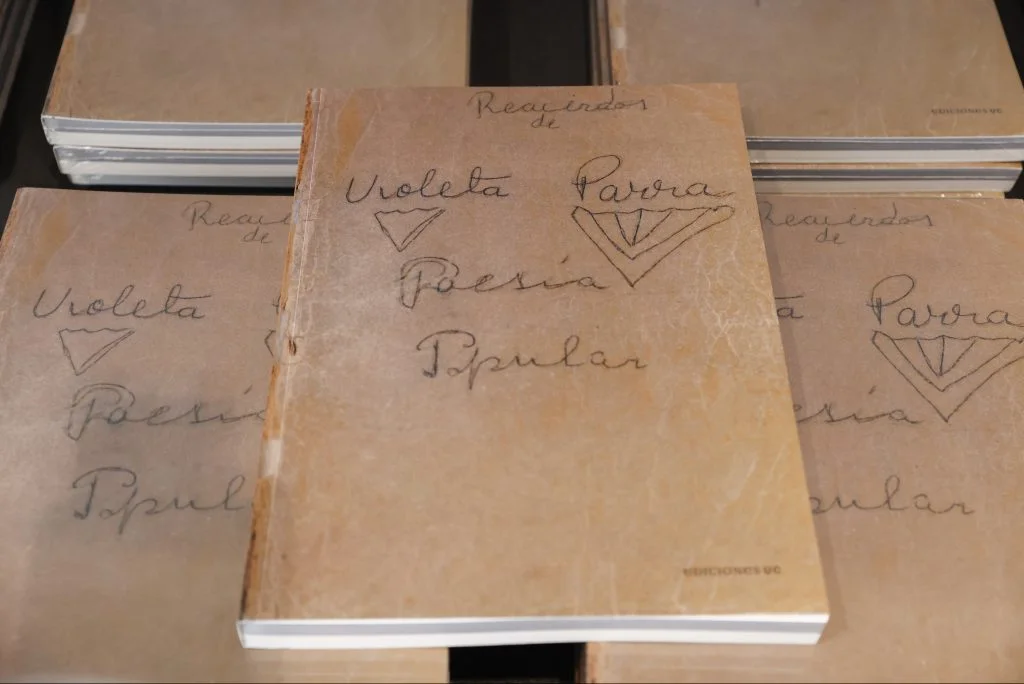 Recuerdos
de
Violeta Parra
Poesía
Popular
EDICIONES UC
EDICIONES UC
Recue
de
Violeta
Poesía
Popul
Recuerdos
de
ta Parra
esía
pular